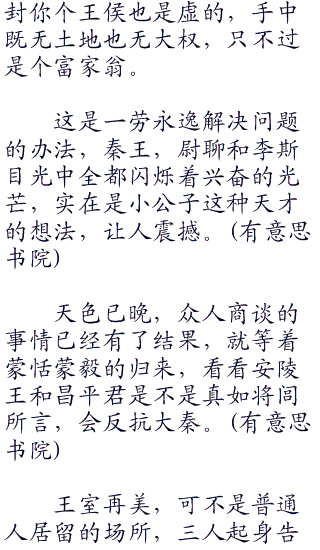 封你个王侯也是虚的，手中
既无土地也无大权，只不过
是个富家翁。
这是一劳永逸解决问题
的办法，秦王，尉聊和李斯
目光中全都闪烁着兴奋的光
芒，实在是小公子这种天才
的想法，让人震撼。(有意思
书院)
天色已晚，众人商谈的
事情已经有了结果，就等着
蒙恬蒙毅的归来，看看安陵
王和昌平君是不是真如将闾
所言，会反抗大秦。(有意思
书院)
王室再美，可不是普通
人居留的场所，三人起身告